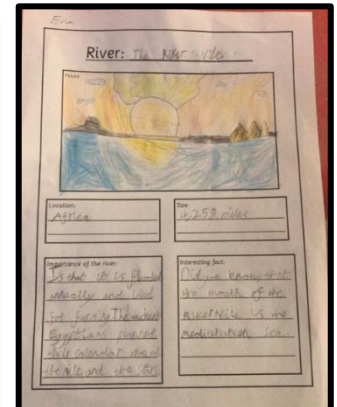 Evie
River: The River Nile
Picture
Location:
Africa
Size:
4258 miles
Importance of the river:
Is that it is flooded
annually and used
for farming. The ancient
Egyptians planned
their calendar around
the nile and the stars
Interesting fact:
Did you know that
the mouth of the
River Nile is the
Mediterranean Sea.